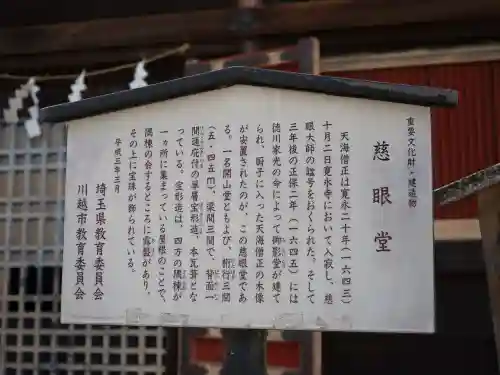 重要文化財・建造物
慈眼堂
天海僧正は寛永二十年（一六四三）
十月二日寛永寺において入寂し、慈
眼大師の諡号をおくられた。そして
三年後の正保二年（一六四五）には
徳川家光の命によって御影堂が建て
られ、厨子に入った天海僧正の木像
が安置されたのが、この慈眼堂であ
る。一名開山堂ともよび、桁行三間
（五・四五㎡）、梁間三間で、背面一
間通庇付の単層宝形造、本瓦葺とな
っている。宝形造は、四方の隅棟が
一ヵ所に集まっている屋根のことで、
隅棟の会するところに露盤があり、
その上に宝珠が飾られている。
平成三年三月
埼玉県教育委員会
川越市教育委員会